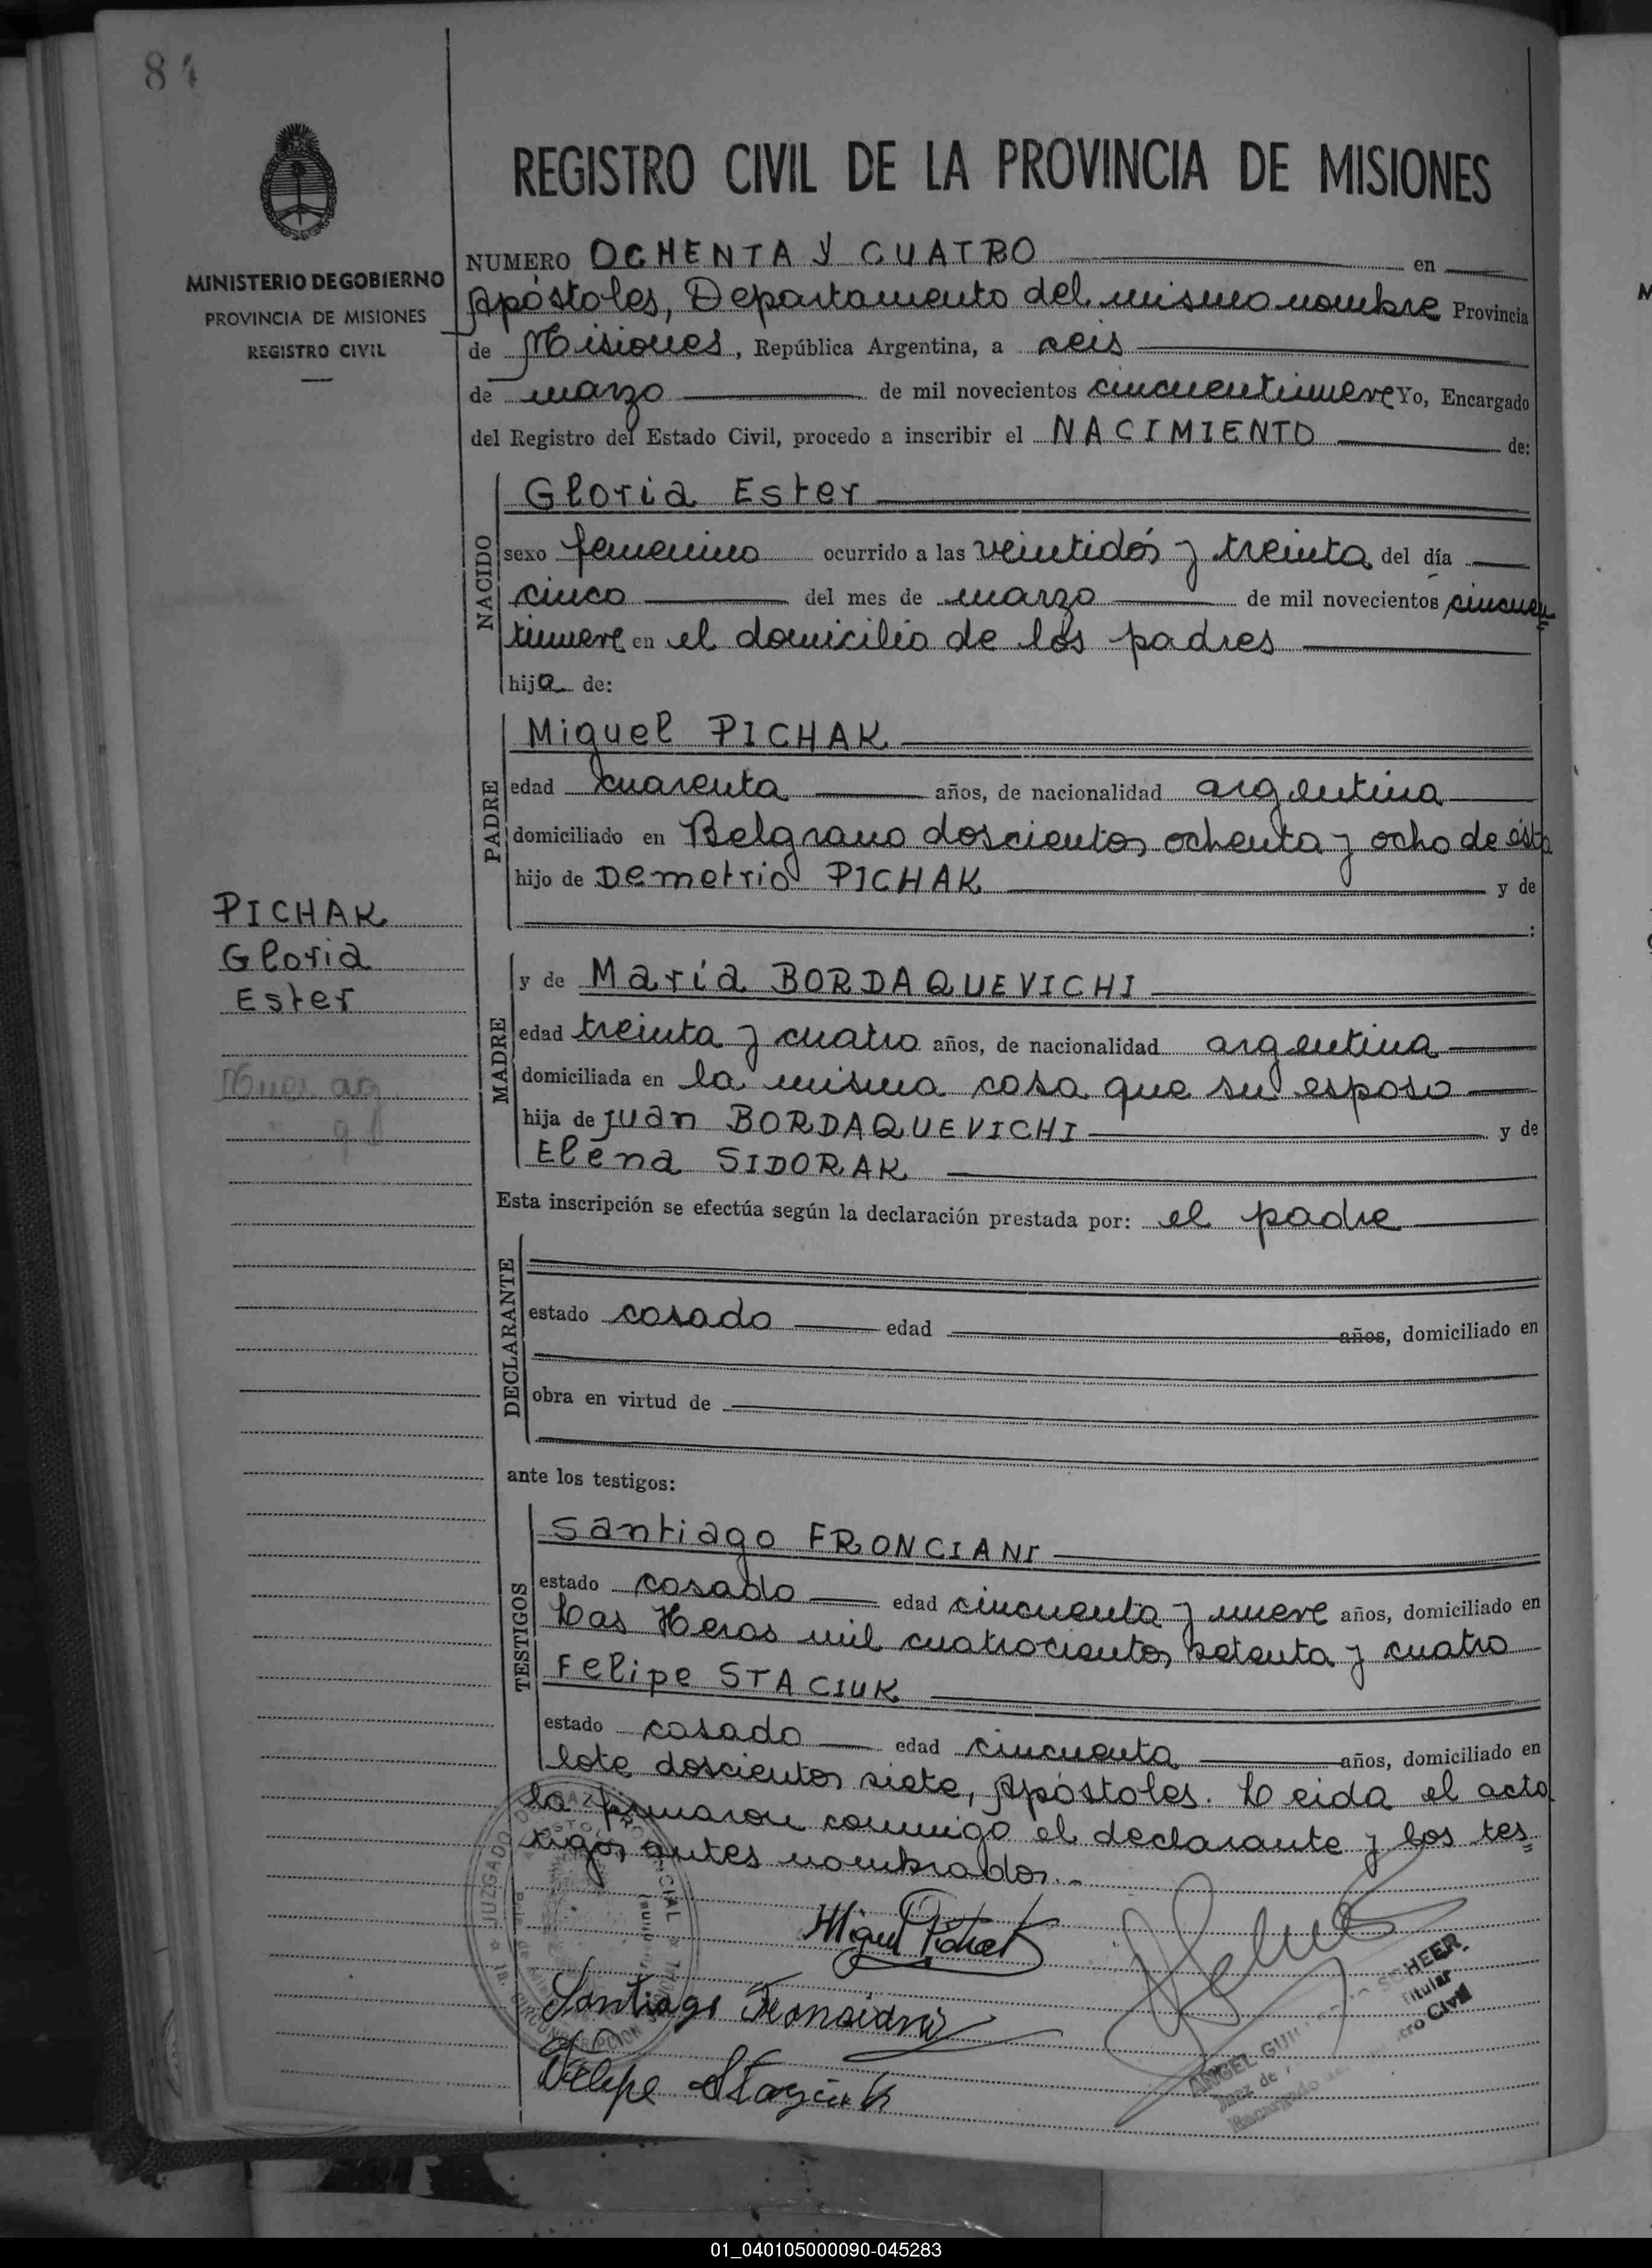 84
MINISTERIO DE GOBIERNO
PROVINCIA DE MISIONES
REGISTRO CIVIL
REGISTRO CIVIL DE LA PROVINCIA DE MISIONES
NUMERO OCHENTA Y CUATRO en
Apóstoles, Departamento del mismo nombre Provincia
de Misiones, República Argentina, a seis
de marzo de mil novecientos cincuentinueve Yo, Encargado
del Registro del Estado Civil, procedo a inscribir el NACIMIENTO de:
NACIDO
Gloria Ester
sexo femenino ocurrido a las veintidós y treinta del día
cinco del mes de marzo de mil novecientos cincuen=
tinueve en el domicilio de los padres
hija de:
PADRE
Miguel PICHAK
edad cuarenta años, de nacionalidad argentina
domiciliado en Belgrano doscientos ochenta y ocho de ésta
hijo de Demetrio PICHAK y de
:
PICHAK
Gloria
Ester
MADRE
y de María BORDAQUEVICHI
edad treinta y cuatro años, de nacionalidad argentina
domiciliada en la misma casa que su esposo
hija de Juan BORDAQUEVICHI y de
Elena SIDORAK
Esta inscripción se efectúa según la declaración prestada por: el padre
DECLARANTE
estado casado edad años, domiciliado en
obra en virtud de
ante los testigos:
TESTIGOS
Santiago FRONCIANI
estado casado edad cincuenta y nueve años, domiciliado en
Las Heras mil cuatrocientos setenta y cuatro
Felipe STACIUK
estado casado edad cincuenta años, domiciliado en
lote doscientos siete, Apóstoles. Leida el acta
la firmaron conmigo el declarante y los tes=
tigos antes nombrados.-
Miguel Pichak
Santiago Fronciani
Felipe Staziuk
JUZGADO DE PAZ
CIRCUNSCRIPCION
ANGEL GUI SCHEER
Juez de Titular
Encargado Civil
01_040105000090-045283